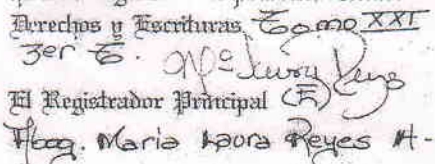 Derechos y Escrituras Tomo XXI
3er T.
El Registrador Principal (E)
Abog. Maria Laura Reyes H-